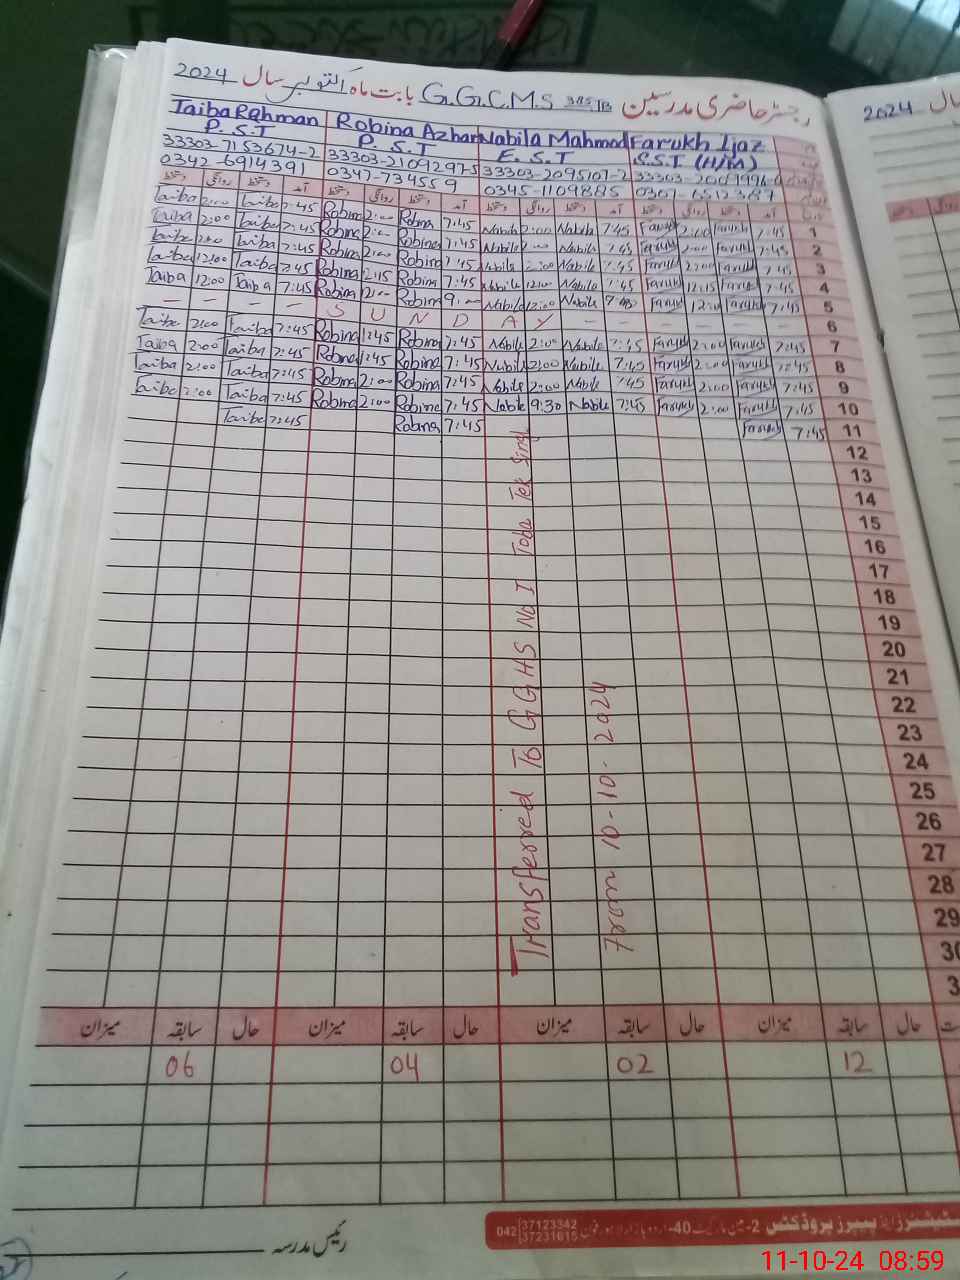 رجسٹر حاضری مدرسین G.G.C.M.S 385 JB بابت ماہ اکتوبر سال 2024
2024 سال
Taiba Rahman Robina Azhar Nabila Mahmod Farukh Ijaz
P.S.T P.S.T E.S.T S.S.T (H/M)
33303-7153674-2 33303-2109297-5 33303-2095107-2
0342-6914391 0347-734559 0345-1109885
دستخط روانگی دستخط آمد دستخط روانگی دستخط آمد دستخط روانگی دستخط آمد دستخط روانگی دستخط آمد
Taiba 2:00 Taiba 7:45 Robina 2:00 Robina 7:45 Nabila 2:00 Nabila 7:45 Farukh 2:00 Farukh 7:45 1
Taiba 2:00 Taiba 7:45 Robina 2:00 Robina 7:45 Nabila 2:00 Nabila 7:45 Farukh 2:00 Farukh 7:45 2
Taiba 2:00 Taiba 7:45 Robina 2:00 Robina 7:45 Nabila 2:00 Nabila 7:45 Farukh 2:00 Farukh 7:45 3
Taiba 12:00 Taiba 7:45 Robina 12:15 Robina 7:45 Nabila 12:00 Nabila 7:45 Farukh 12:15 Farukh 7:45 4
Taiba 12:00 Taiba 7:45 Robina 12:00 Robina 9:00 Nabila 12:00 Nabila Farukh 12:00 Farukh 7:45 5
– – – – S U N D A Y – – – – – – 6
Taiba 2:00 Taiba 7:45 Robina 1:45 Robina 7:45 Nabila 2:00 Nabila 7:45 Farukh 2:00 Farukh 7:45 7
Taiba 2:00 Taiba 7:45 Robina 1:45 Robina 7:45 Nabila 2:00 Nabila 7:45 Farukh 2:00 Farukh 7:45 8
Taiba 2:00 Taiba 7:45 Robina 2:00 Robina 7:45 Nabila 2:00 Nabila 7:45 Farukh 2:00 Farukh 7:45 9
Taiba 2:00 Taiba 7:45 Robina 2:00 Robina 7:45 Nabila 9:30 Nabila 7:45 Farukh 2:00 Farukh 7:45 10
Taiba 7:45 Robina 7:45 Farukh 7:45 11
12
13
14
15
16
17
18
19
20
21
22
23
24
25
26
27
28
29
30
3
Transferred To GGHS No I Toba Tek Singh
From 10-10-2024
میزان سابقہ حال میزان سابقہ حال میزان سابقہ حال میزان سابقہ حال
06 04 02 12
رئیس مدرسہ
042 37123342
37231615
اینڈ پیپرز پروڈکٹس
11-10-24 08:59